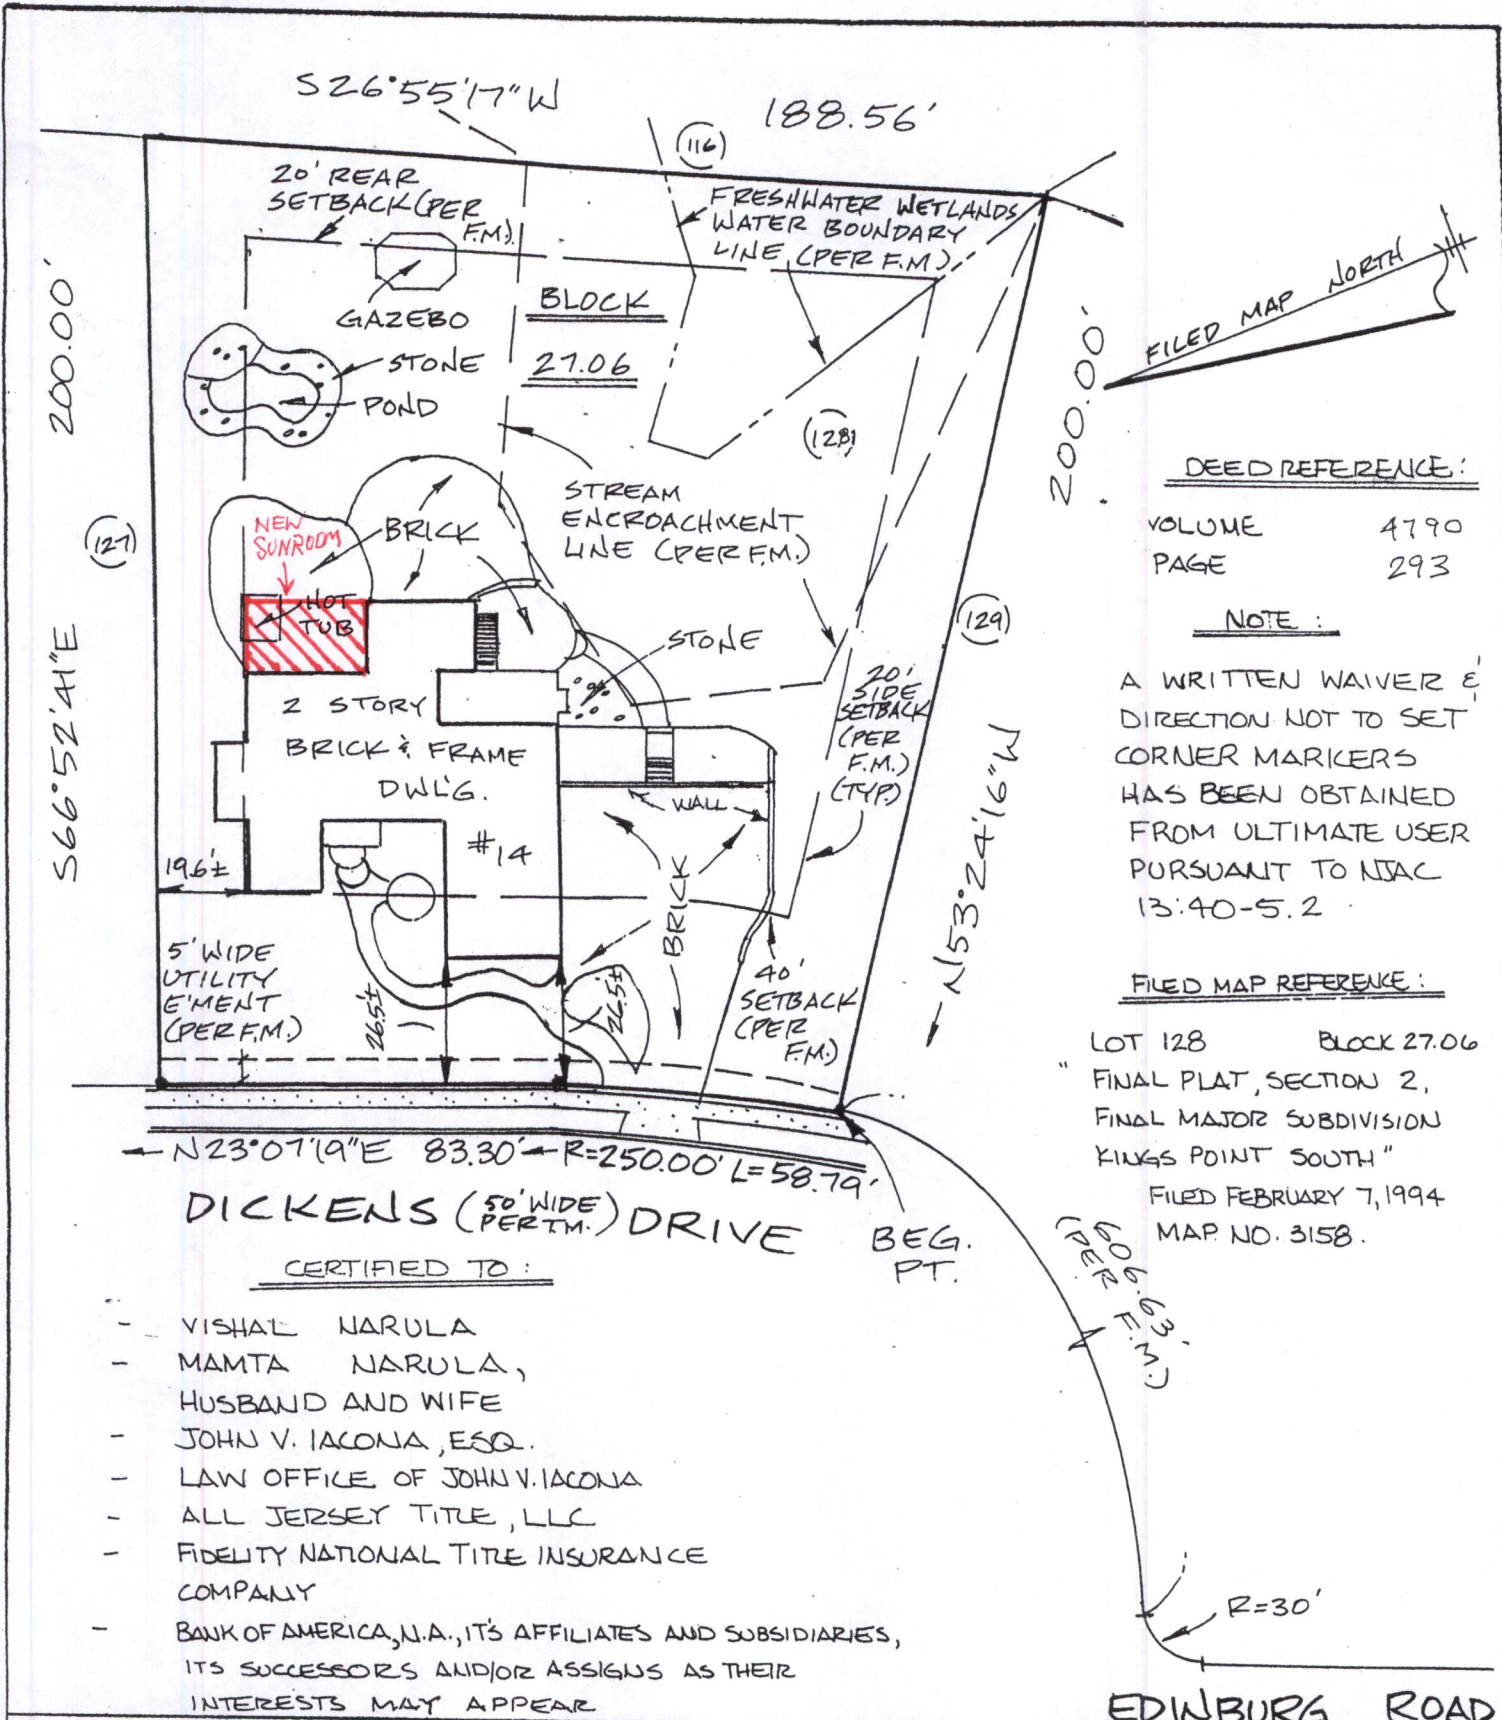 S26°55'17"W
188.56'
(116)
20' REAR
SETBACK (PER
F.M.)
FRESHWATER WETLANDS
WATER BOUNDARY
LINE (PER F.M.)
GAZEBO
BLOCK
27.06
STONE
POND
200.00'
S66°52'41"E
(127)
(128)
200.00'
N53°24'16"W
(129)
FILED MAP NORTH
STREAM
ENCROACHMENT
LINE (PER F.M.)
NEW
SUNROOM
BRICK
HOT
TUB
STONE
2 STORY
BRICK & FRAME
DWL'G.
#14
WALL
20'
SIDE
SETBACK
(PER
F.M.)
(TYP.)
19.6'±
BRICK
5' WIDE
UTILITY
E'MENT
(PER F.M.)
26.5'±
26.5'±
40'
SETBACK
(PER
F.M.)
N23°07'19"E 83.30' R=250.00' L=58.79'
DICKENS (50' WIDE
PER T.M.) DRIVE
BEG.
PT.
DEED REFERENCE:
VOLUME 4790
PAGE 293
NOTE:
A WRITTEN WAIVER &
DIRECTION NOT TO SET
CORNER MARKERS
HAS BEEN OBTAINED
FROM ULTIMATE USER
PURSUANT TO NJAC
13:40-5.2
FILED MAP REFERENCE:
LOT 128 BLOCK 27.06
"FINAL PLAT, SECTION 2,
FINAL MAJOR SUBDIVISION
KINGS POINT SOUTH"
FILED FEBRUARY 7, 1994
MAP. NO. 3158.
606.63'
(PER F.M.)
R=30'
EDINBURG ROAD
CERTIFIED TO:
- VISHAL NARULA
- MAMTA NARULA,
HUSBAND AND WIFE
- JOHN V. IACONA, ESQ.
- LAW OFFICE OF JOHN V. IACONA
- ALL JERSEY TITLE, LLC
- FIDELITY NATIONAL TITLE INSURANCE
COMPANY
- BANK OF AMERICA, N.A., IT'S AFFILIATES AND SUBSIDIARIES,
ITS SUCCESSORS AND/OR ASSIGNS AS THEIR
INTERESTS MAY APPEAR